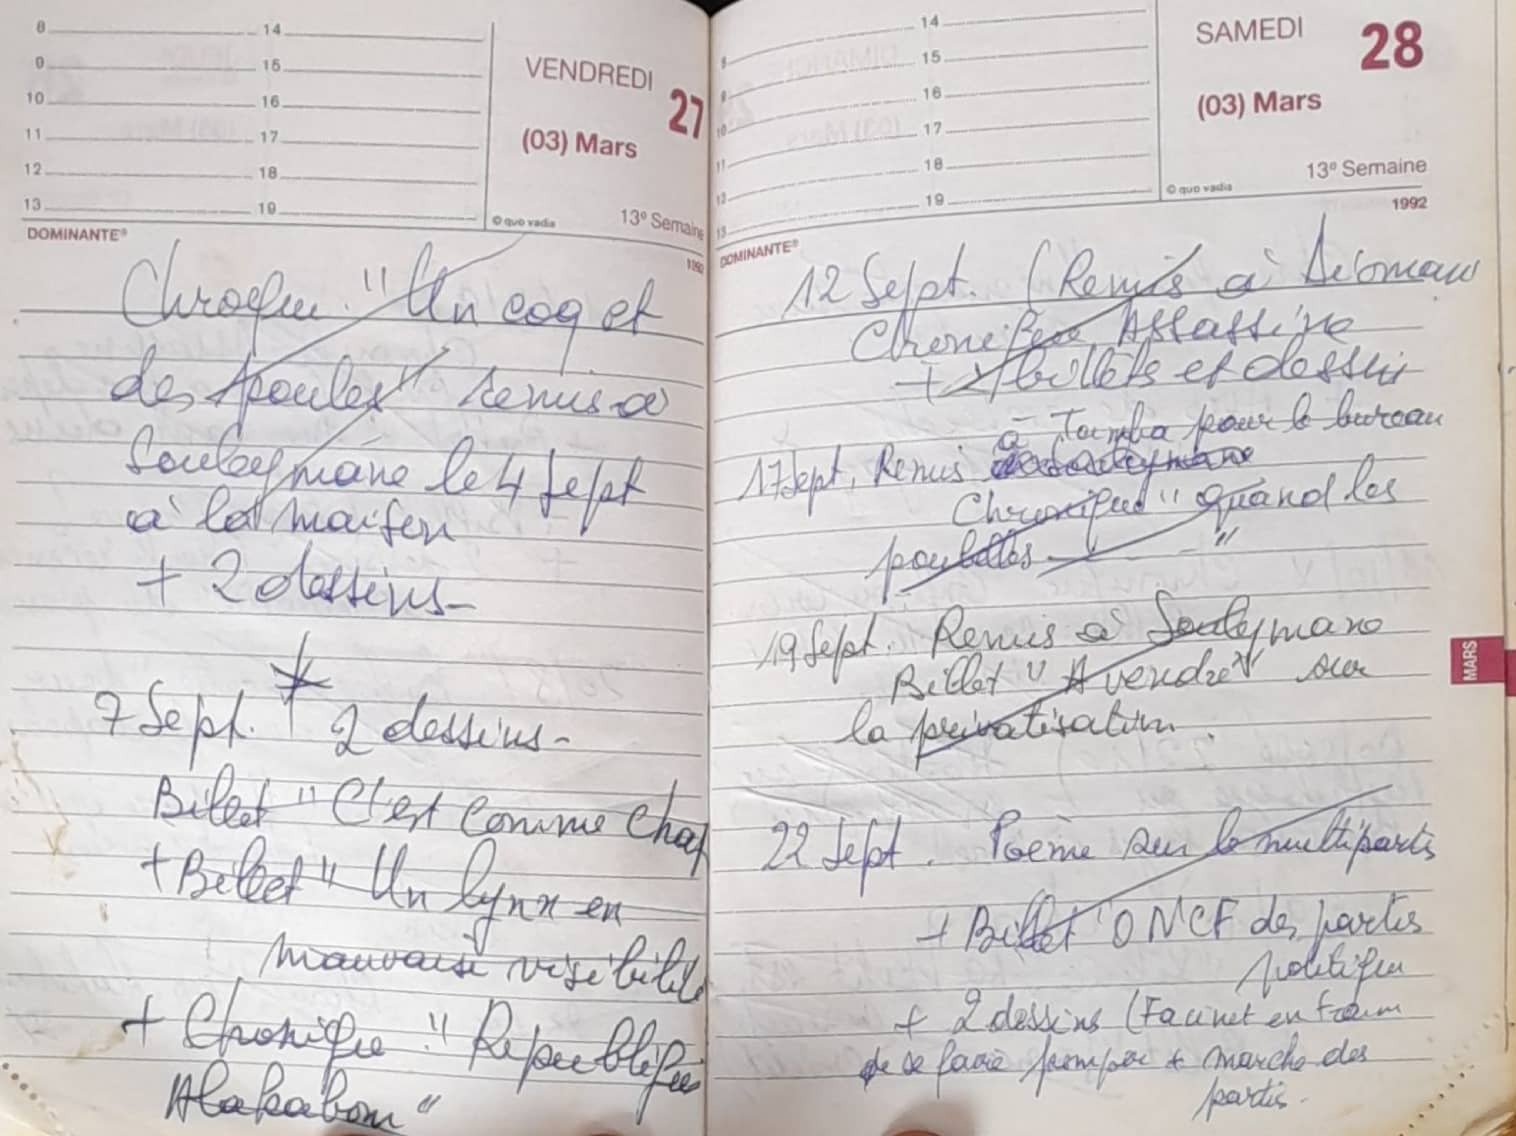 8 14
9 15
10 16
11 17
12 18
13 19
VENDREDI 27
(03) Mars
© quo vadis 13e Semaine
DOMINANTE® 1992
Chroque "Un coq et
des poules" remis à
Souleymane le 4 Sept
à la maison
+ 2 dessins-
7 Sept. 2 dessins-
Billet "C'est comme Cha
+ Billet "Un lynx en
mauvaise visibilité
+ Chronique "République
Alakabon"
8 14
9 15
10 16
11 17
12 18
13 19
SAMEDI 28
(03) Mars
13e Semaine
© quo vadis
DOMINANTE® 1992
12 Sept. (Remis à
Chronique Assassine
+ billets et dessin
- à Tamba pour le bureau
17 Sept. Remis Souleymane
Chronique "quand les
poubelles - "
19 Sept. Remis à Souleymane
Billet "A vendre" sur
la privatisation.
22 Sept. Poème sur le multipartis
+ Billet "ONCF des partis
politique
+ 2 dessins (Facinet en
de se faire pomper + marche des
partis.
MARS